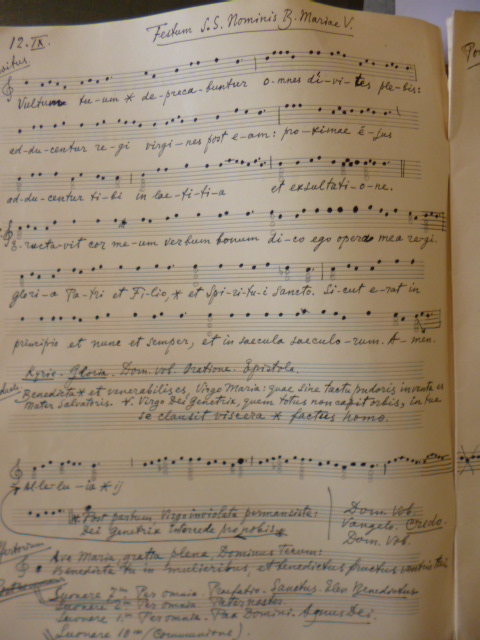 12. IX.
Festum S.S. Nominis B. Mariae V.
Vultum tu-um * de-preca-buntur o-mnes dí-vi-tes ple-bis:
ad-du-centur re-gi virgi-nes post e-am: pro-ximae é-jus
ad-du-centur ti-bi in lae-ti-ti-a et exsultati-o-ne.
E-ructa-vit cor me-um verbum bonum di-co ego opera mea re-gi.
glori-a Pa-tri et Fi-lio, * et Spi-ri-tu-i Sancto. Si-cut e-rat in
principio et nunc et semper, et in saecula saeculo-rum. A-men.
Kyrie - Gloria. Dom. vob. Oratione. Epistola.
Benedicta * et venerabilis es, Virgo Maria: quae sine tactu pudoris inventa es
Mater Salvatoris. V. Virgo Dei Genetrix, quem totus non capit orbis, in tua
se clausit viscera * factus homo.
Al-le-lu-ia * ij
V. Post partum Virgo inviolata permansisti:
Dei Genetrix intercede pro nobis.
Dom. Vob.
Vangelo. Credo.
Dom. Vob.
Ave Maria, gratia plena, Dominus Tecum:
Benedicta tu in mulieribus et benedictus fructus ventris tui
Suonare Per omnia. Prefatio. Sanctus. Elev. Benedictus
Suonare Per omnia Pater noster.
Suonare Per omnia. Pax Domini. Agnus Dei.
Suonare (Communione).